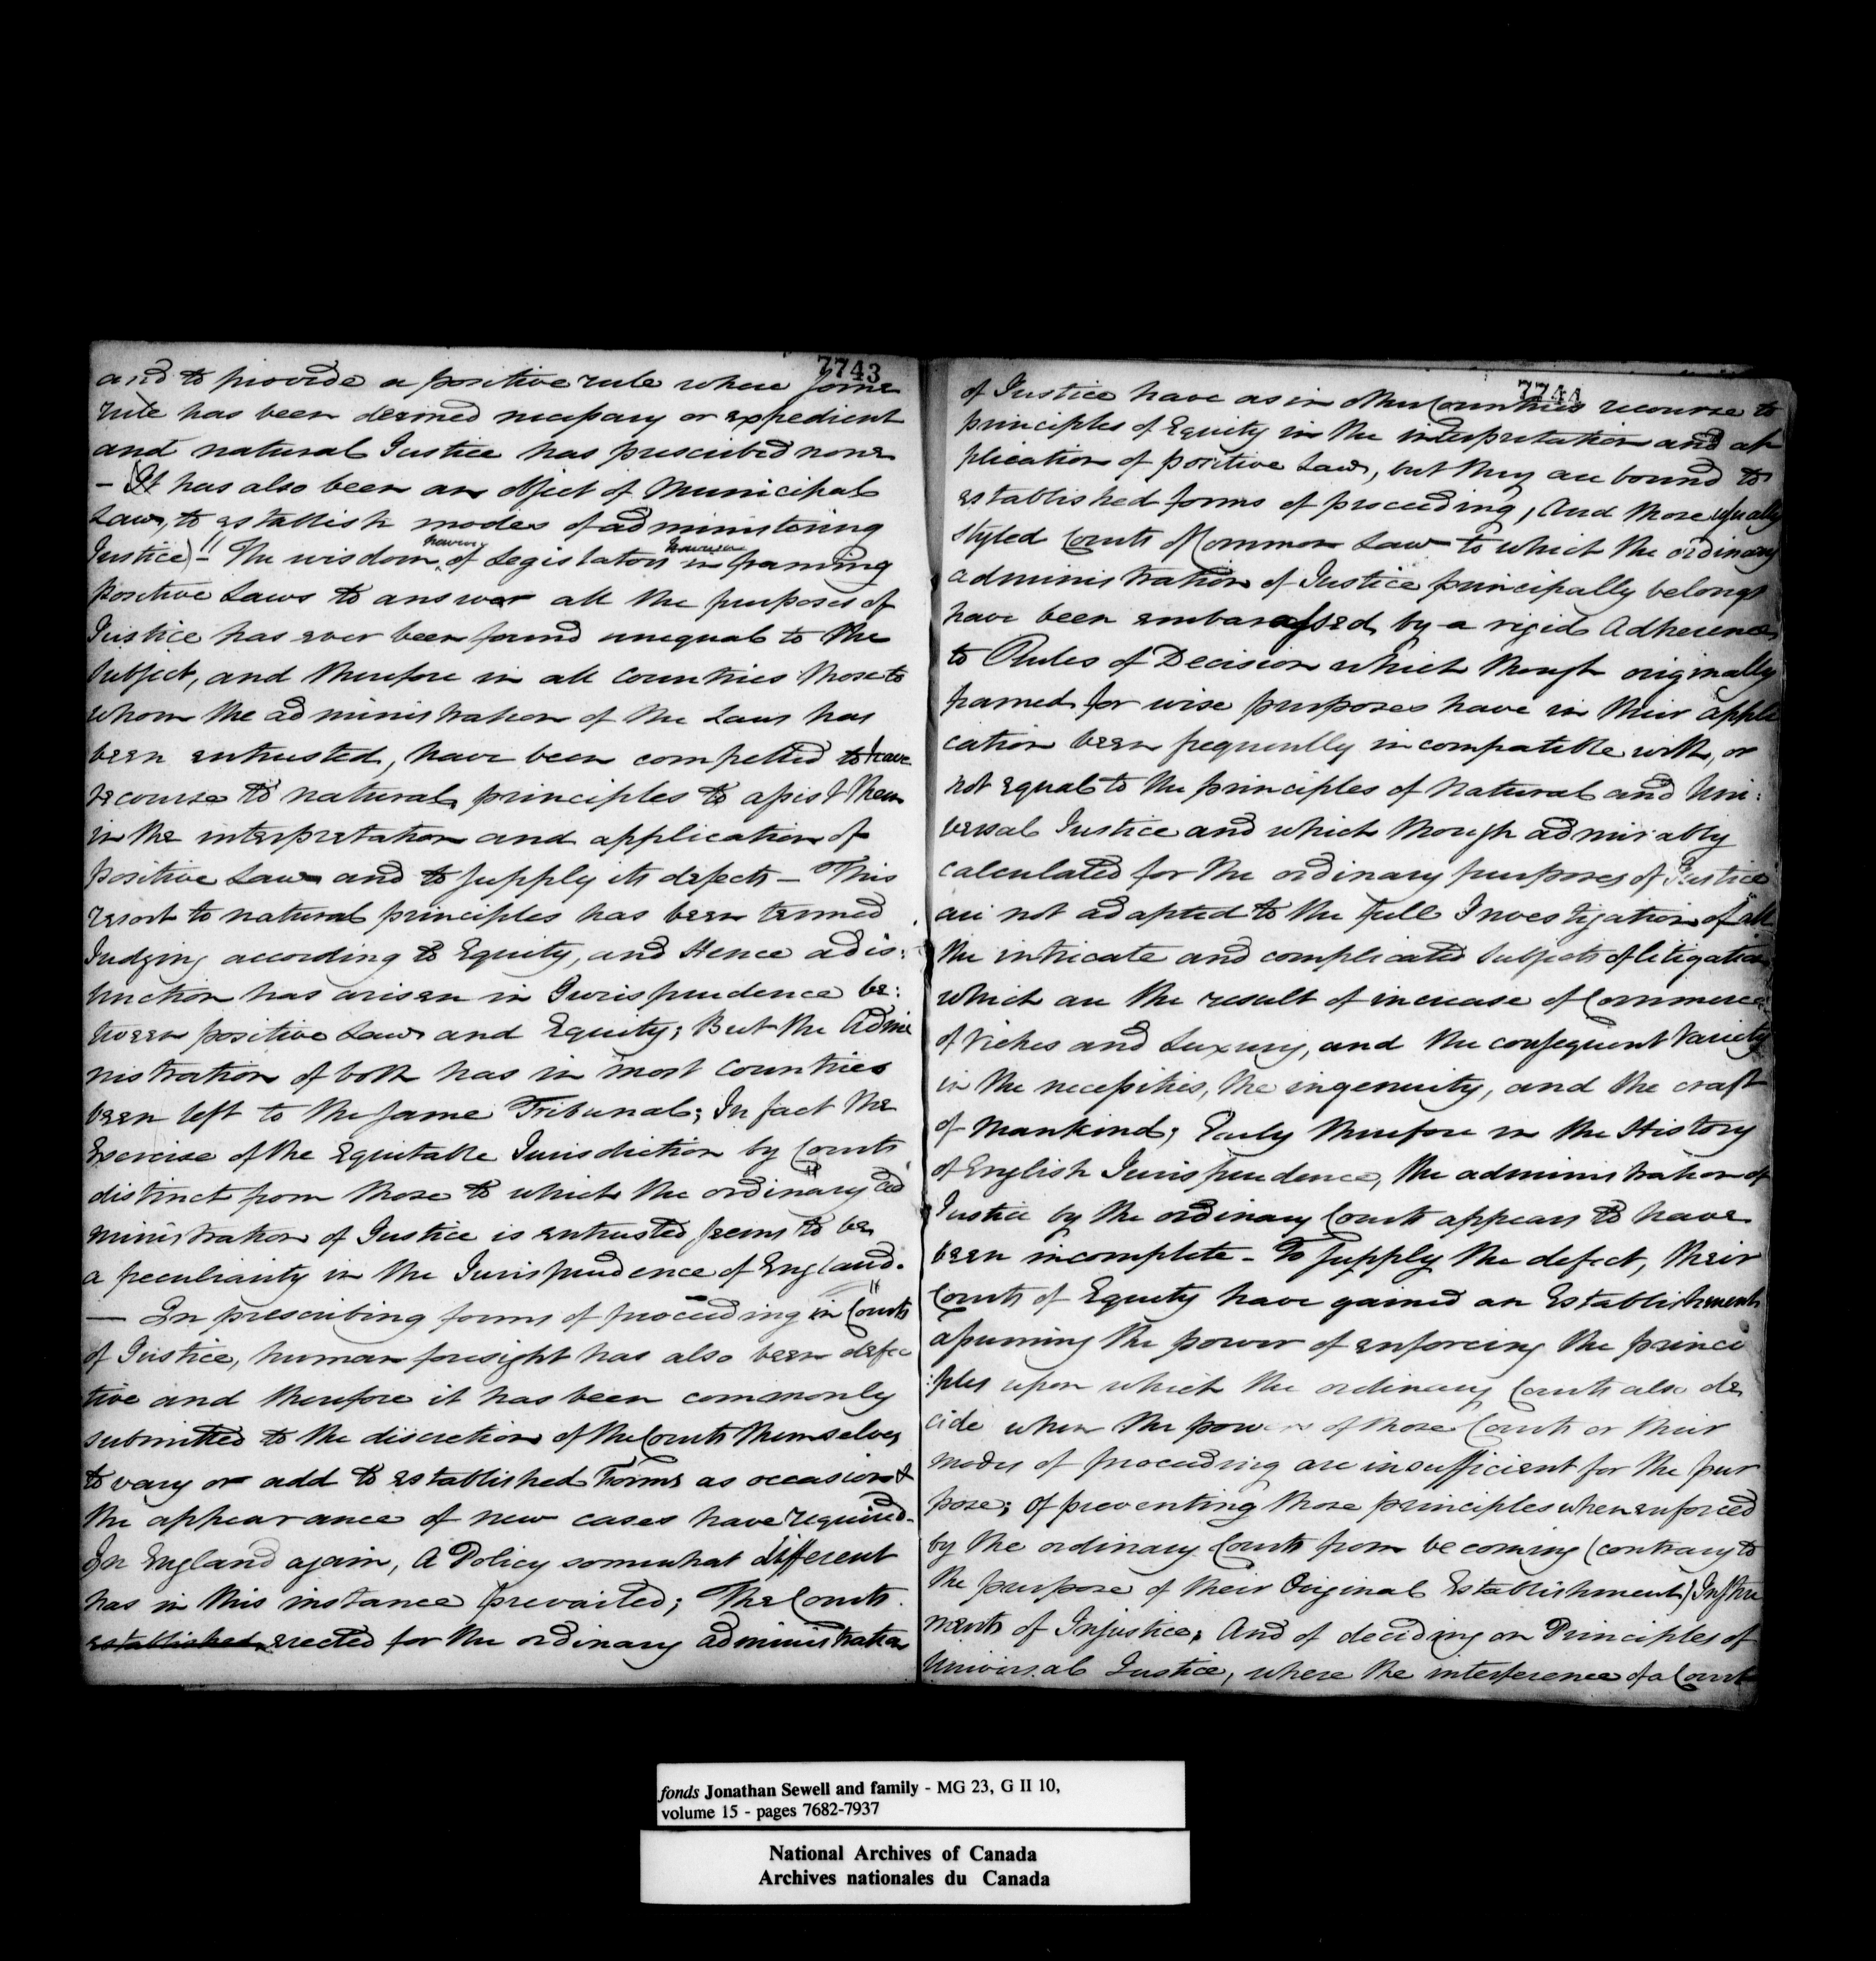 7743
and to provide a positive rule where some
rule has been deemed necessary or expedient
and natural Justice has prescribed none
- It has also been an object of Municipal
Law, to establish modes of administering
Justice) - The wisdom however of Legislators however in framing
positive Laws to answer all the purposes of
Justice has ever been found unequal to the
subject, and therefore in all countries those to
whom the administration of the Laws has
been entrusted, have been compelled to have
recourse to natural principles to assist them
in the interpretation and application of
positive Law and to supply its defects - This
resort to natural principles has been termed
Judging according to Equity, and Hence a dis:
tinction has arisen in Jurisprudence be:
tween positive Law and Equity; But the Admi
nistration of both has in most Countries
been left to the same Tribunal; In fact the
Exercise of the Equitable Jurisdiction by Courts
distinct from those to which the ordinary ad
ministration of Justice is entrusted seems to be
a peculiarity in the Jurisprudence of England.
— In prescribing forms of proceeding in Courts
of Justice, human foresight has also been defec
tive and therefore it has been commonly
submitted to the discretion of the Courts themselves
to vary or add to established Forms as occasion &
the appearance of new cases have required.
In England again, A Policy somewhat different
has in this instance prevailed; The Courts
established erected for the ordinary administration
7744
of Justice have as in other Countries recourse to
principles of Equity in the interpretation and ap
plication of positive Law, but they are bound to
established forms of proceeding, And those usually
styled Courts of Common Law to which the ordinary
administration of Justice principally belongs
have been embarassed by a rigid Adherence
to Rules of Decision which though originally
framed for wise purposes have in their appli
cation been frequently incompatible with, or
not equal to the principles of Natural and Uni:
versal Justice and which though admirably
calculated for the ordinary purposes of Justice
are not adapted to the full Investigation of all
the intricate and complicated Subjects of litigation
which are the result of increase of Commerce
of riches and Luxury, and the consequent Variety
in the necessities, the ingenuity, and the craft
of Mankind; Early therefore in the History
of English Jurisprudence, the administration of
Justice by the ordinary Courts appears to have
been incomplete - To supply the defect, their
Courts of Equity have gained an Establishment
assuming the power of enforcing the princi
:ples upon which the ordinary Courts also de
cide when the powers of those Courts or their
modes of proceeding are insufficient for the pur
pose; of preventing those principles when enforced
by the ordinary Courts from becoming (contrary to
the purpose of their Original Establishment) Instru
ments of Injustice; And of deciding on Principles of
Universal Justice, where the interference of a Court
fonds Jonathan Sewell and family - MG 23, G II 10,
volume 15 - pages 7682-7937
National Archives of Canada
Archives nationales du Canada